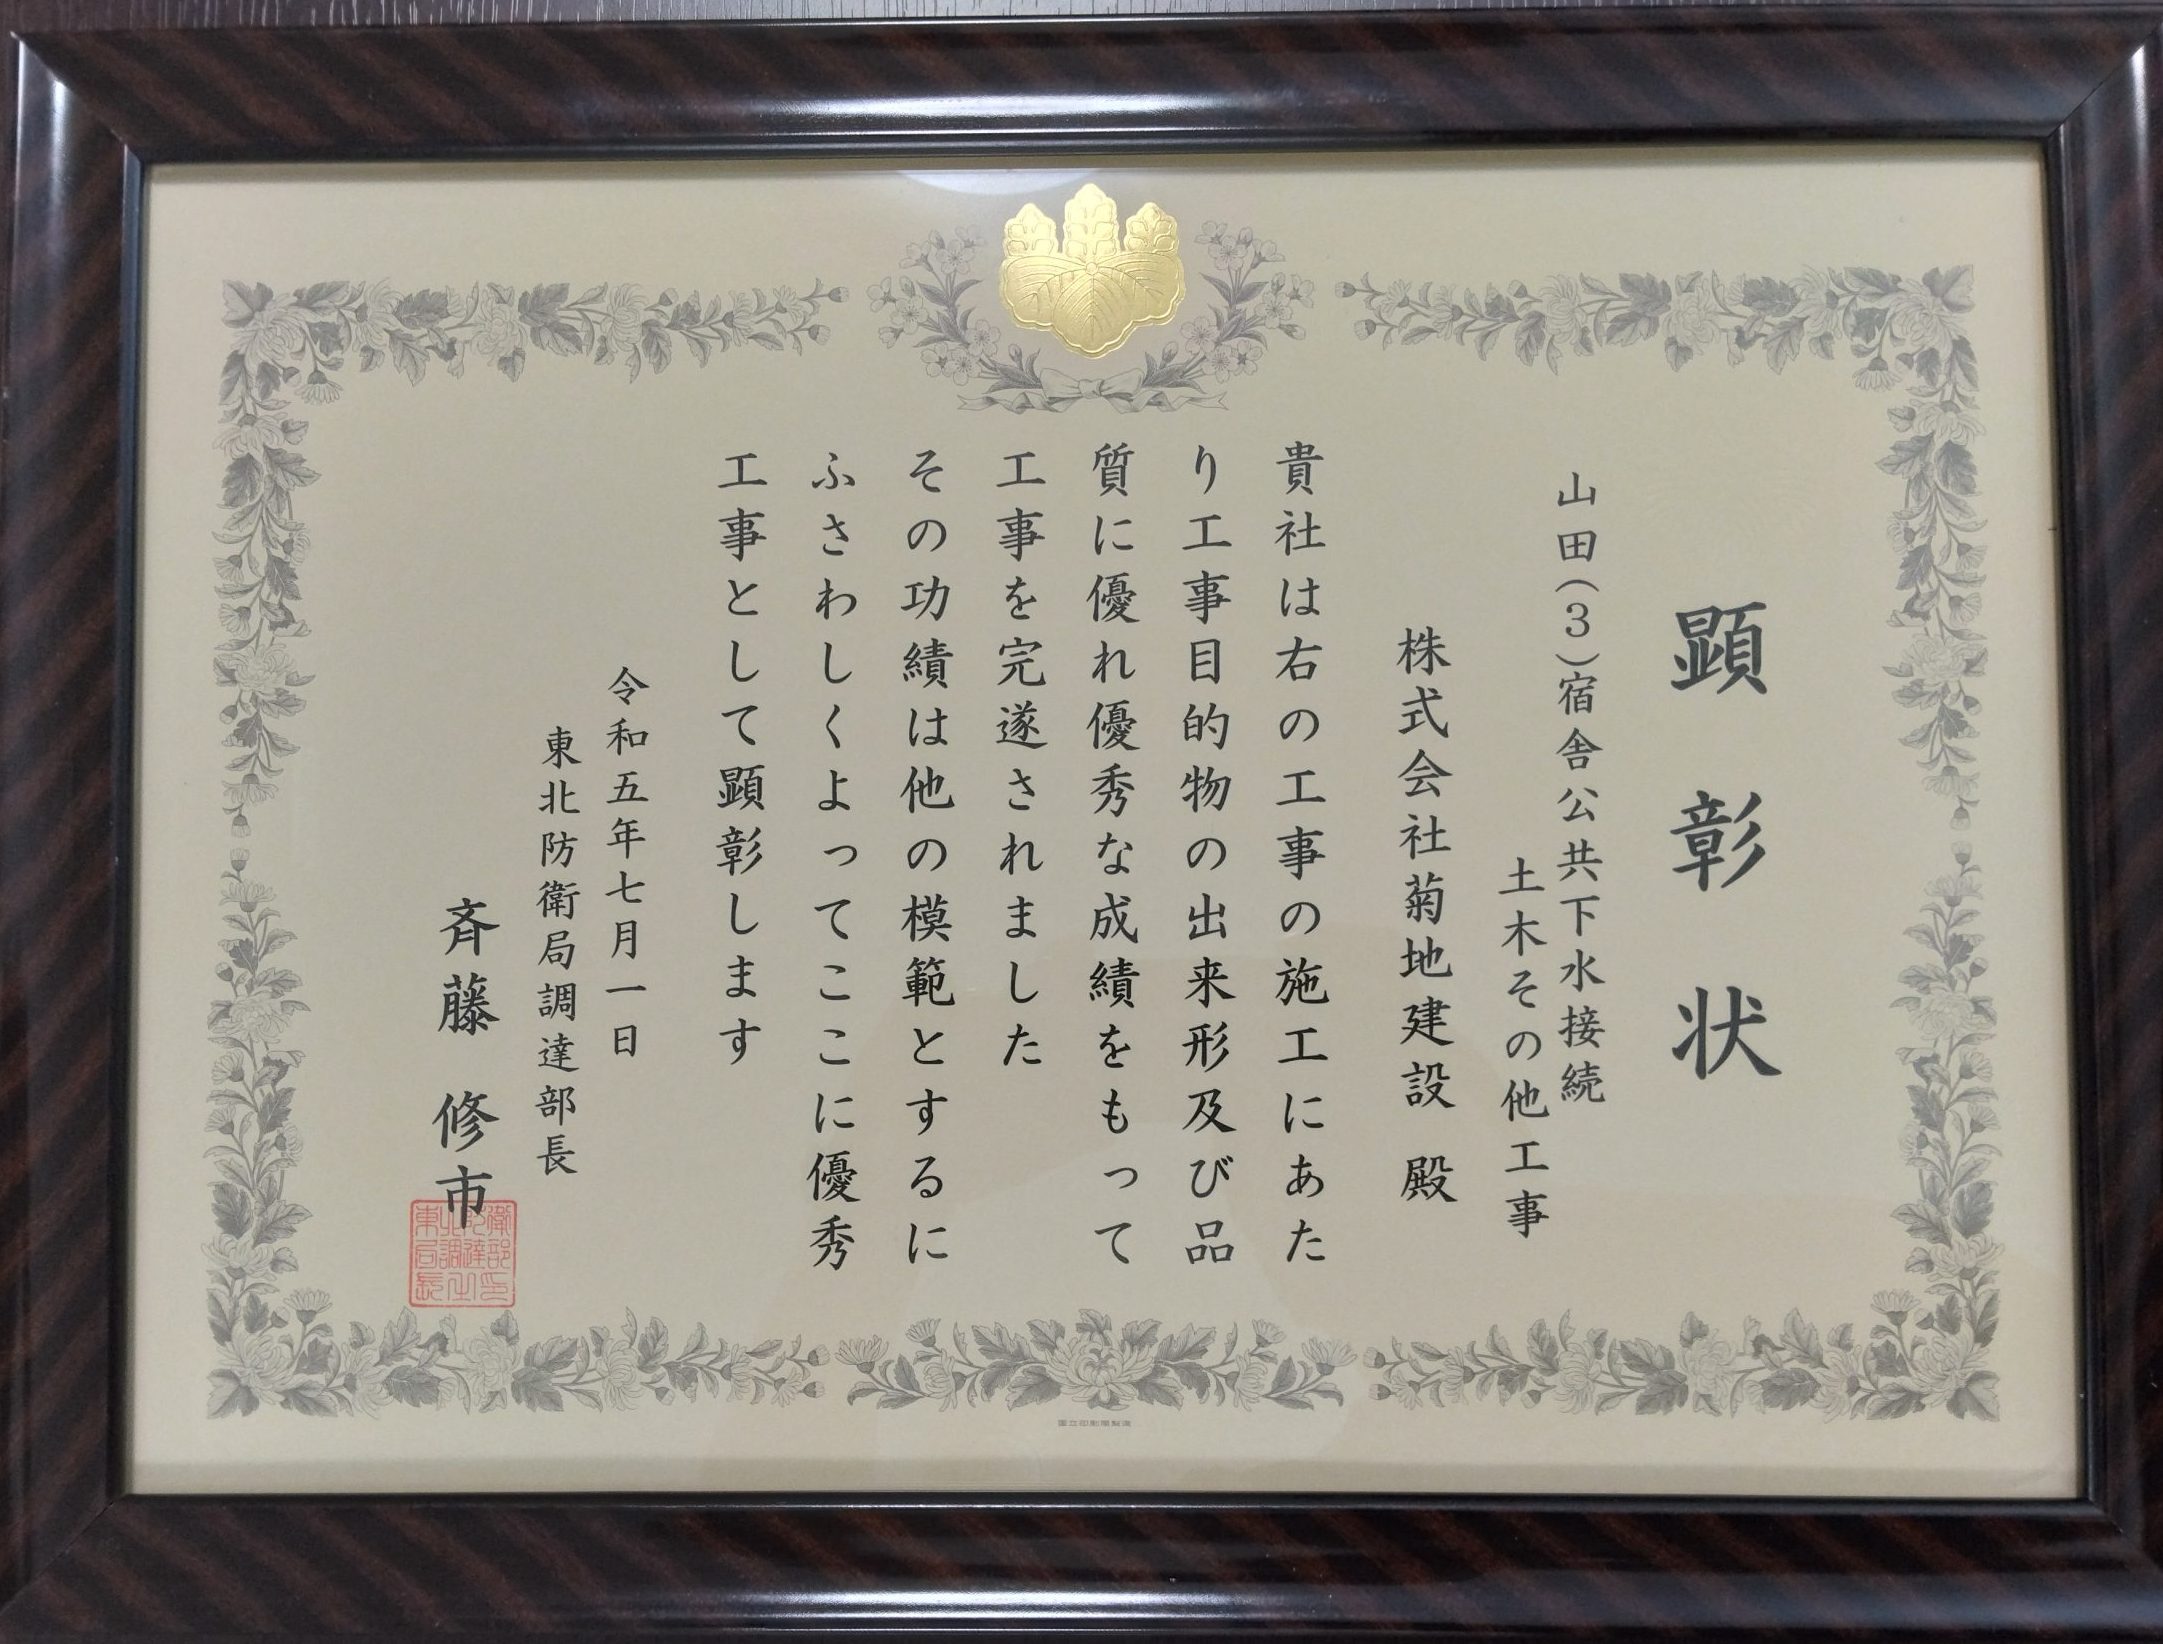 顕彰状
山田(3)宿舎公共下水接続
土木その他工事
株式会社菊地建設 殿
貴社は右の工事の施工にあた
り工事目的物の出来形及び品
質に優れ優秀な成績をもって
工事を完遂されました
その功績は他の模範とするに
ふさわしくよってここに優秀
工事として顕彰します
令和五年七月一日
東北防衛局調達部長
斉藤 修市
国立印刷局製造